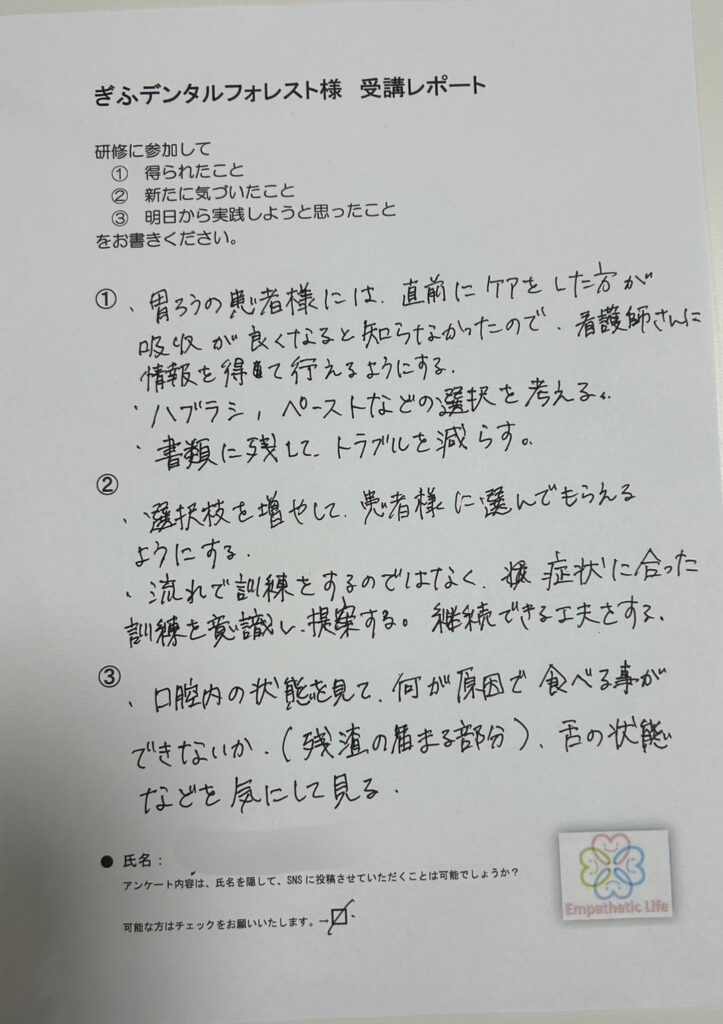 ぎふデンタルフォレスト様 受講レポート
研修に参加して
① 得られたこと
② 新たに気づいたこと
③ 明日から実践しようと思ったこと
をお書きください。
①・胃ろうの患者様には、直前にケアをした方が
吸収が良くなると知らなかったので、看護師さんに
情報を得て行えるようにする。
・ハブラシ、ペーストなどの選択を考える。
・書類に残して、トラブルを減らす。
②
・選択枝を増やして、患者様に選んでもらえる
ようにする。
・流れで訓練をするのではなく、症状に合った
訓練を意識し、提案する。継続できる工夫をする。
③
・口腔内の状態を見て、何が原因で食べる事が
できないか、(残渣の溜まる部分)、舌の状態
などを気にして見る。
● 氏名:
アンケート内容は、氏名を隠して、SNSに投稿させていただくことは可能でしょうか?
可能な方はチェックをお願いいたします。→☑
Empathetic Life